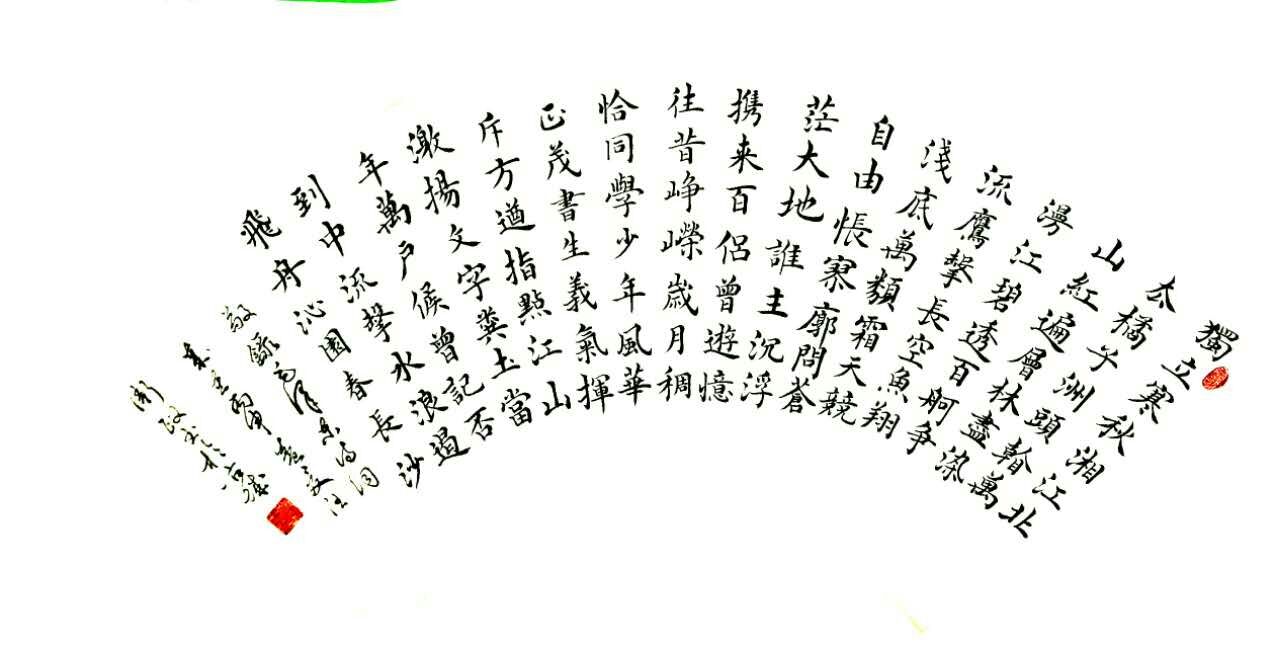 獨立寒秋湘江北
去橘子洲頭翰萬
山紅遍層林盡染
漫江碧透百舸爭
流鷹擊長空魚翔
淺底萬類霜天競
自由悵寥廓問蒼
茫大地誰主沉浮
携来百侶曾遊憶
往昔崢嶸歲月稠
恰同學少年風華
正茂書生義氣揮
斥方遒指點江山
激揚文字糞土當
年萬户候曾記否
到中流擊水浪遏
飛舟沁園春長沙
敬錄毛澤東詩詞
丙申